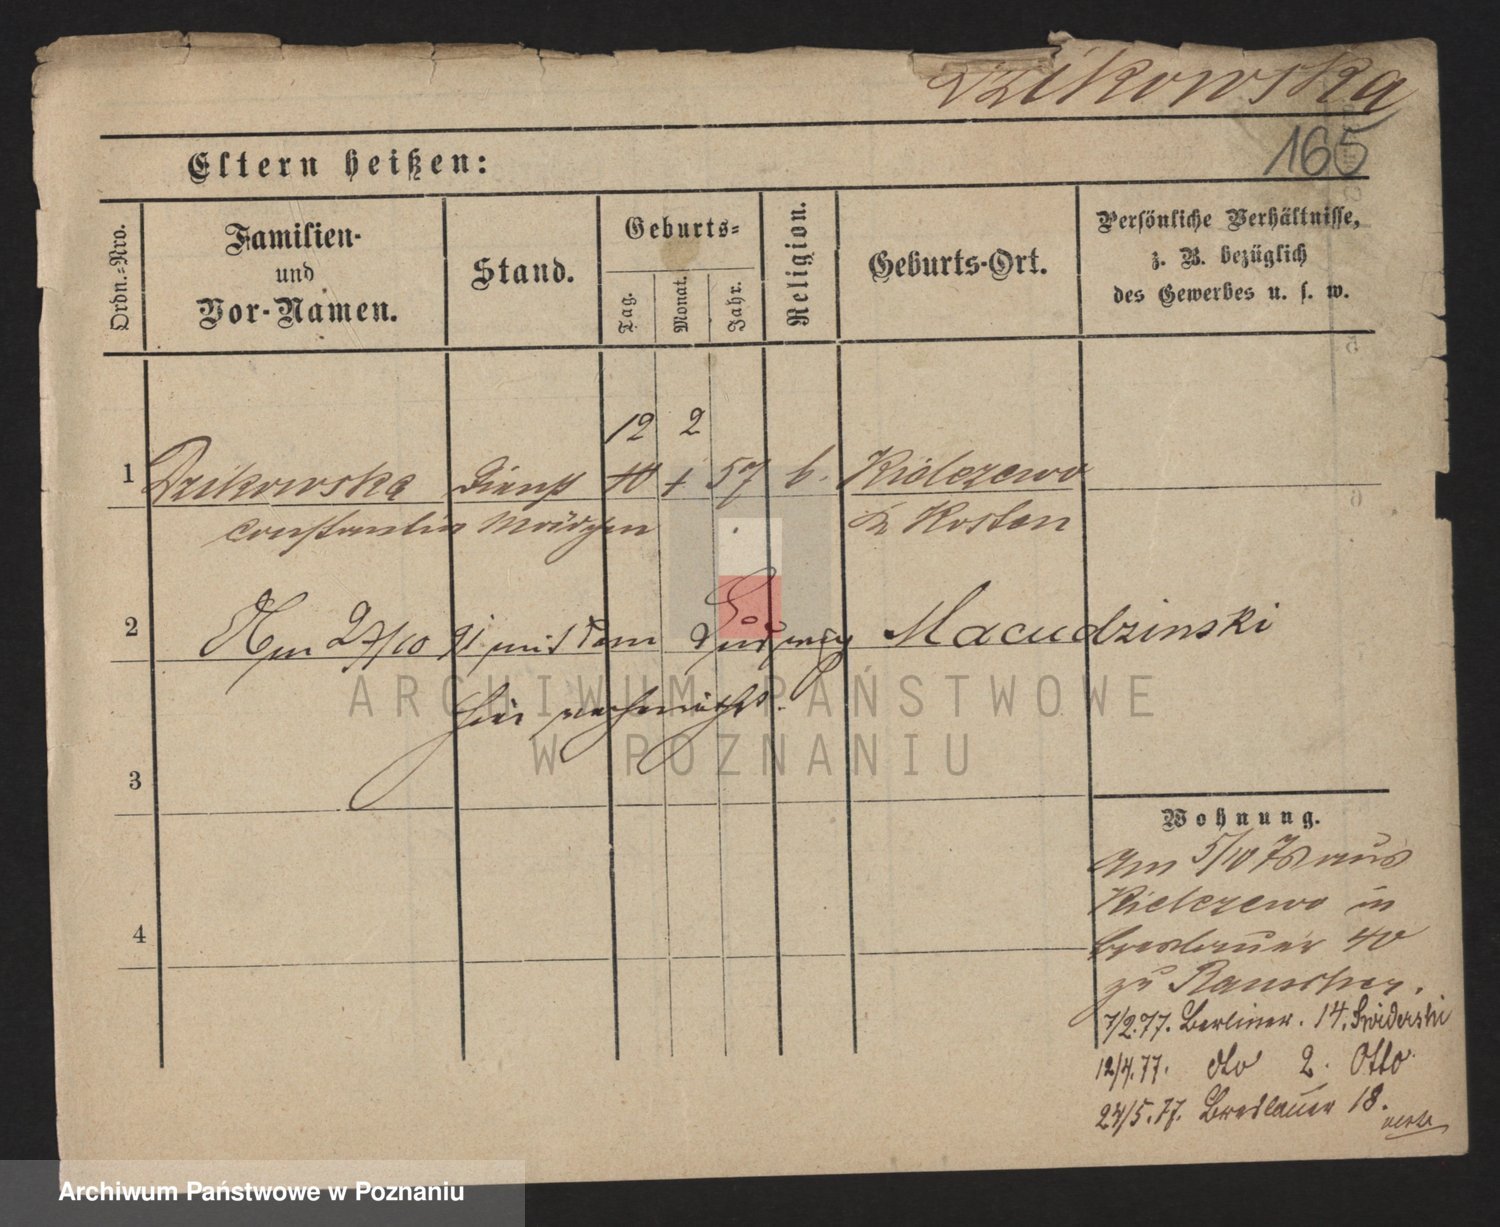 Dzikowska
165
Eltern heißen:
Ordn.-Nro.
Familien-
und
Vor-Namen.
Stand.
Geburts-
Tag.
Monat.
Jahr.
Religion.
Geburts-Ort.
Persönliche Verhältnisse,
z. B. bezüglich
des Gewerbes u. s. w.
12 2
1 Dzikowska Dienst 57 k. Kielczewo
Constantia Mädchen Kr Kosten
2 Am 27/10 91 mit dem Ludwig Macudzinski
hier verheirathet.
3
4
Wohnung.
Am 5/10 76 aus
Kielczewo in
Breslauer 40
zu Rauscher.
7/2.77. Berliner. 14. Swiderski
12/4.77. dto 2. Otto
24/5.77. Breslauer 18.
ARCHIWUM PAŃSTWOWE
W POZNANIU
Archiwum Państwowe w Poznaniu